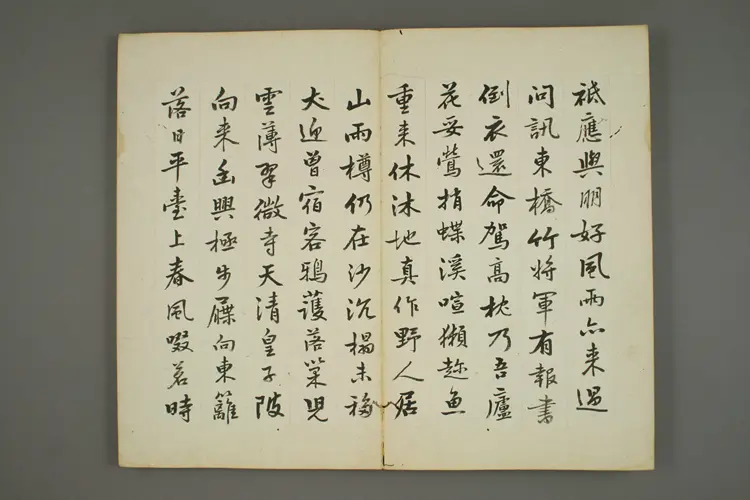 祗應與朋好風雨亦來過
問訊東橋竹將軍有報書
倒衣還命駕高枕乃吾廬
花妥鶯捎蝶溪喧獺趁魚
重來休沐地真作野人居
山雨樽仍在沙沉榻未移
犬迎曾宿客鴉護落巢兒
雲薄翠微寺天清皇子陂
向來幽興極步屧向東籬
落日平臺上春風啜茗時